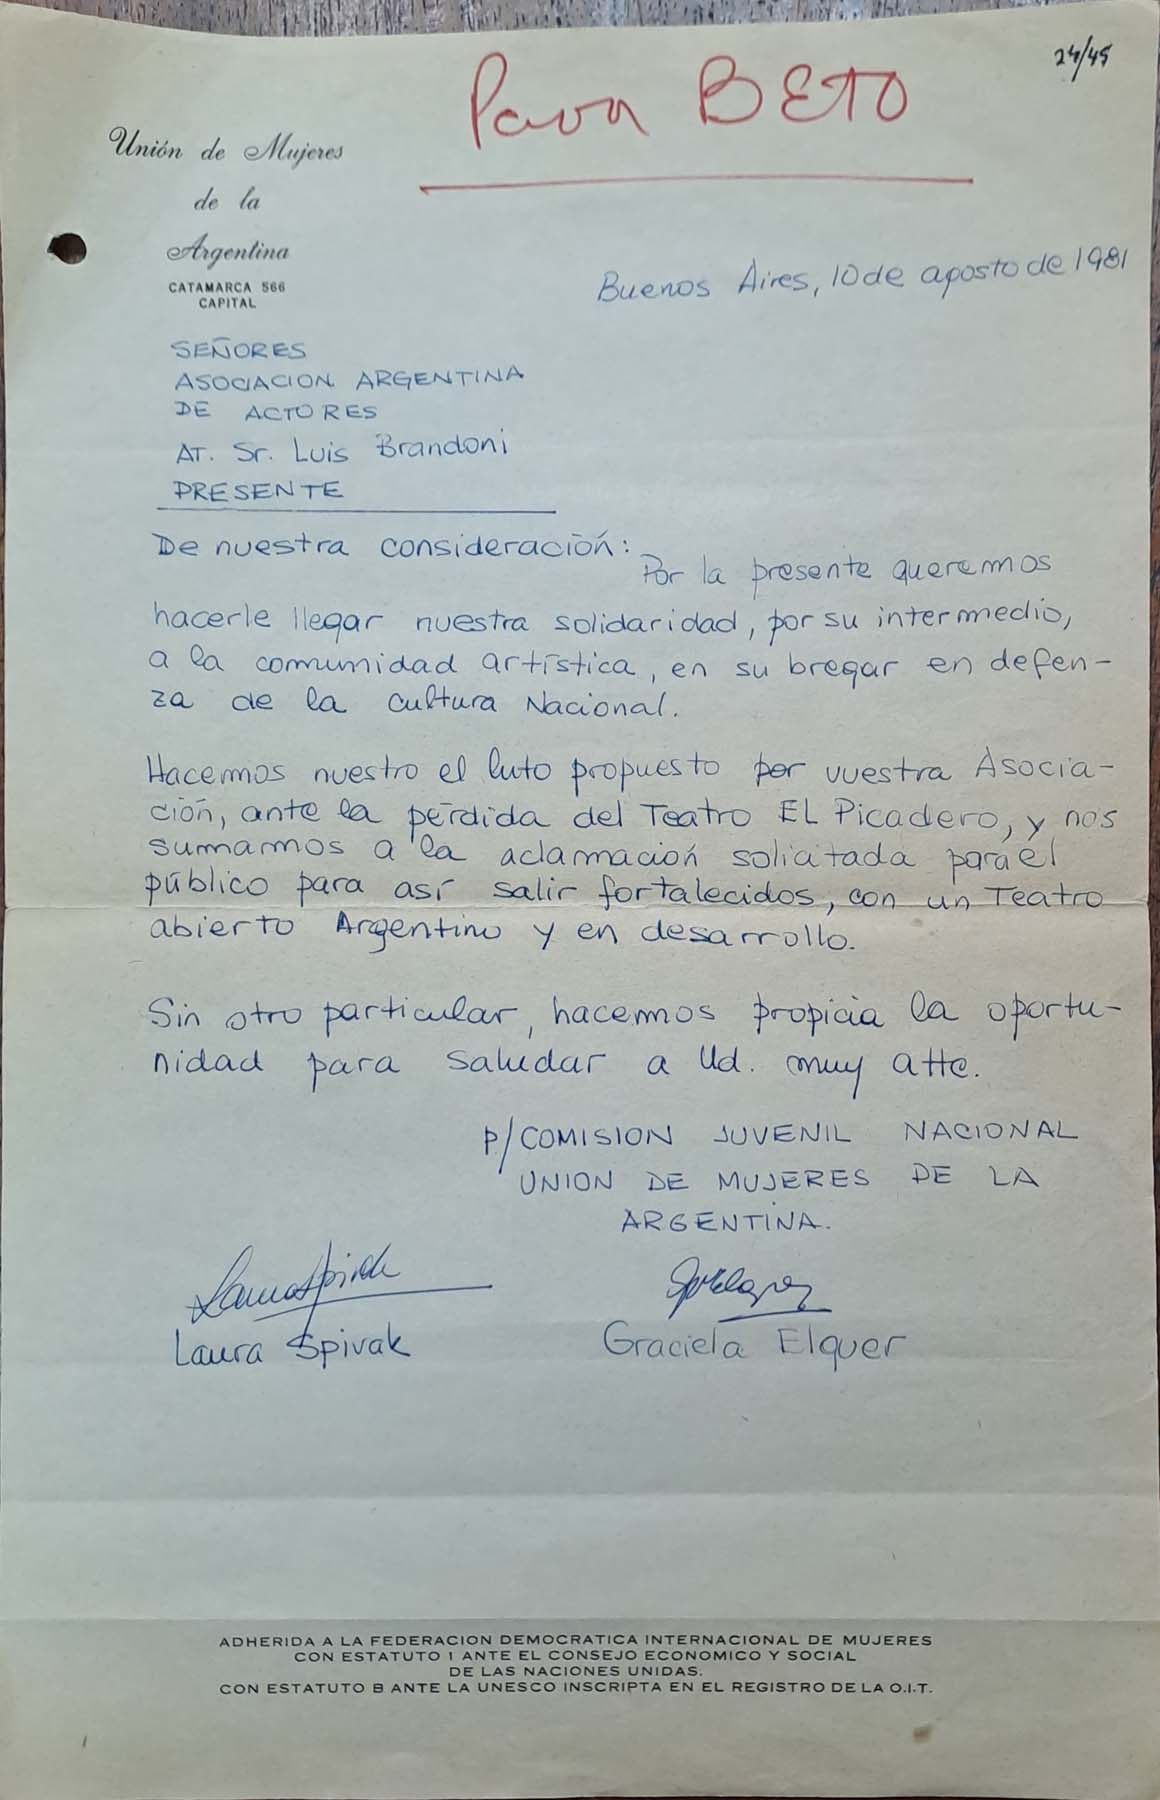 24/45
Para BETO
Unión de Mujeres
de la
Argentina
CATAMARCA 566
CAPITAL
Buenos Aires, 10 de agosto de 1981
SEÑORES
ASOCIACION ARGENTINA
DE ACTORES
AT. Sr. Luis Brandoni
PRESENTE
De nuestra consideración:
Por la presente queremos
hacerle llegar nuestra solidaridad, por su intermedio,
a la comunidad artística, en su bregar en defen-
za de la cultura Nacional.
Hacemos nuestro el luto propuesto por vuestra Asocia-
ción, ante la pérdida del Teatro EL Picadero, y nos
sumamos a la aclamación solicitada para el
público para así salir fortalecidos, con un Teatro
abierto Argentino y en desarrollo.
Sin otro particular, hacemos propicia la oportu-
nidad para saludar a Ud. muy atte.
P/COMISION JUVENIL NACIONAL
UNION DE MUJERES DE LA
ARGENTINA.
Laura Spivak
Laura Spivak
Graciela Elquer
ADHERIDA A LA FEDERACION DEMOCRATICA INTERNACIONAL DE MUJERES
CON ESTATUTO 1 ANTE EL CONSEJO ECONOMICO Y SOCIAL
DE LAS NACIONES UNIDAS.
CON ESTATUTO B ANTE LA UNESCO INSCRIPTA EN EL REGISTRO DE LA O.I.T.